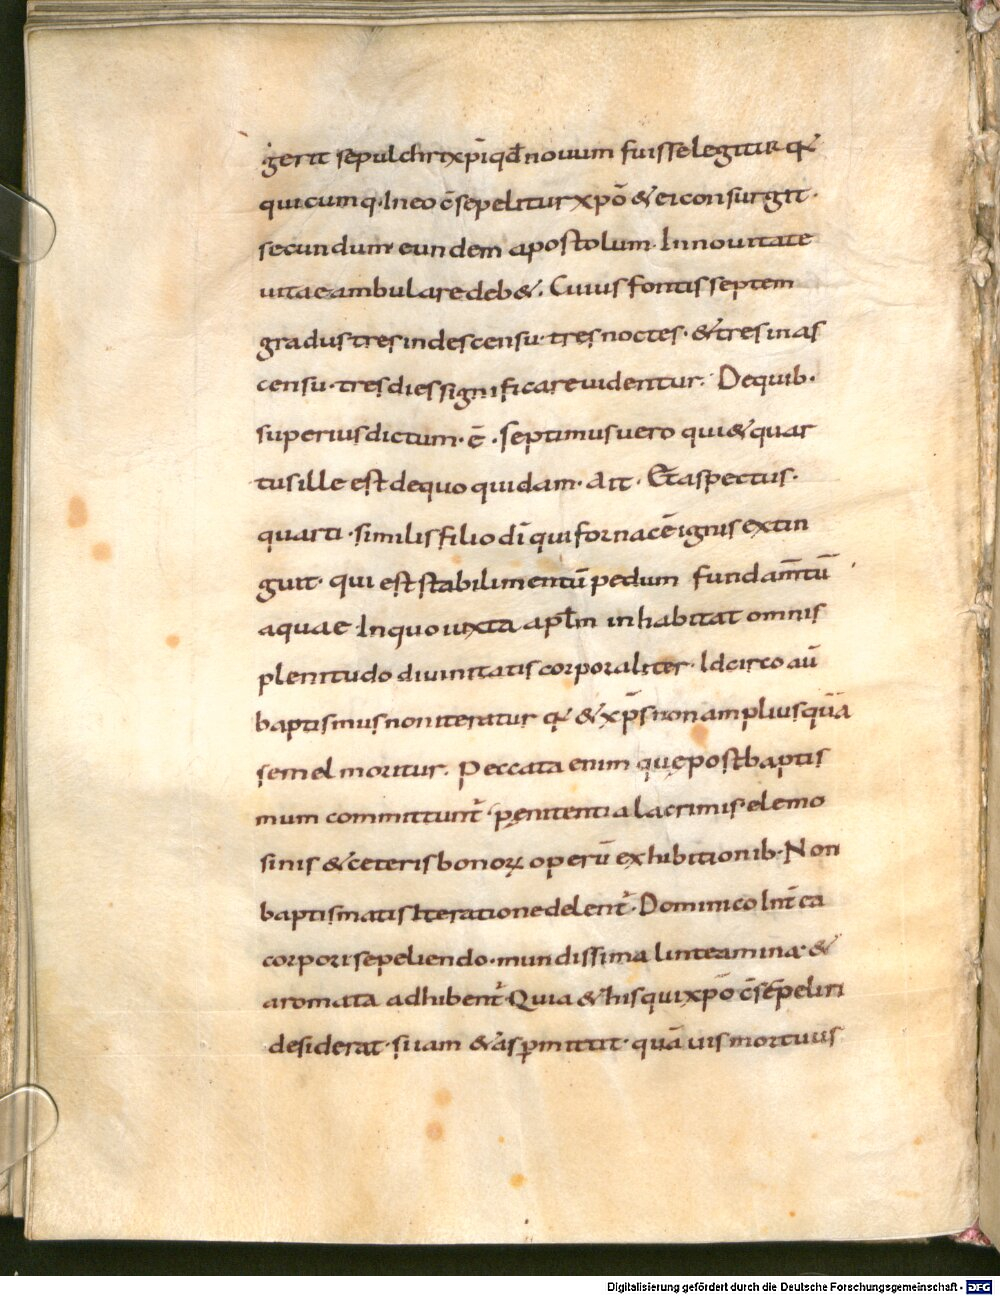 gerit sepulchri xp̄i qđ nouum fuisse legitur q̄
quicumq· In eo c̄sepelitur xpō & ei consurgit·
secundum eundem apostolum· In nouitate
uitae ambulare deb&. Cuius fontis septem
gradus tres in descensu· tres noctes· & tres in as
censu· tres dies significare uidentur. De quib·
superius dictum· ē· septimus uero qui & quar
tus ille est de quo quidam· Ait· Et aspectus·
quarti· similis filio dī qui fornacē ignis extin
guit· qui est stabilimentū pedum fundam̄tū
aquae· In quo iuxta apłm inhabitat omnis
plenitudo diuinitatis corporaliter· Idcirco aū
baptismus non iteratur q̄ & xp̄s non amplius quā
semel moritur. Peccata enim quę post baptis
mum committunt̄· pęnitentia lacrimis elemo
sinis & ceteris bonoꝝ operū exhibitionib· Non
baptismatis Iteratione delent̄· Dominico
corpori sepeliendo· mundissima linteamina· &
aromata adhibent̄· Quia & his qui xpō c̄sepeliri
desiderat· suam & as ꝑmittit· quā uis mortuus
Digitalisierung gefördert durch die Deutsche Forschungsgemeinschaft - DFG